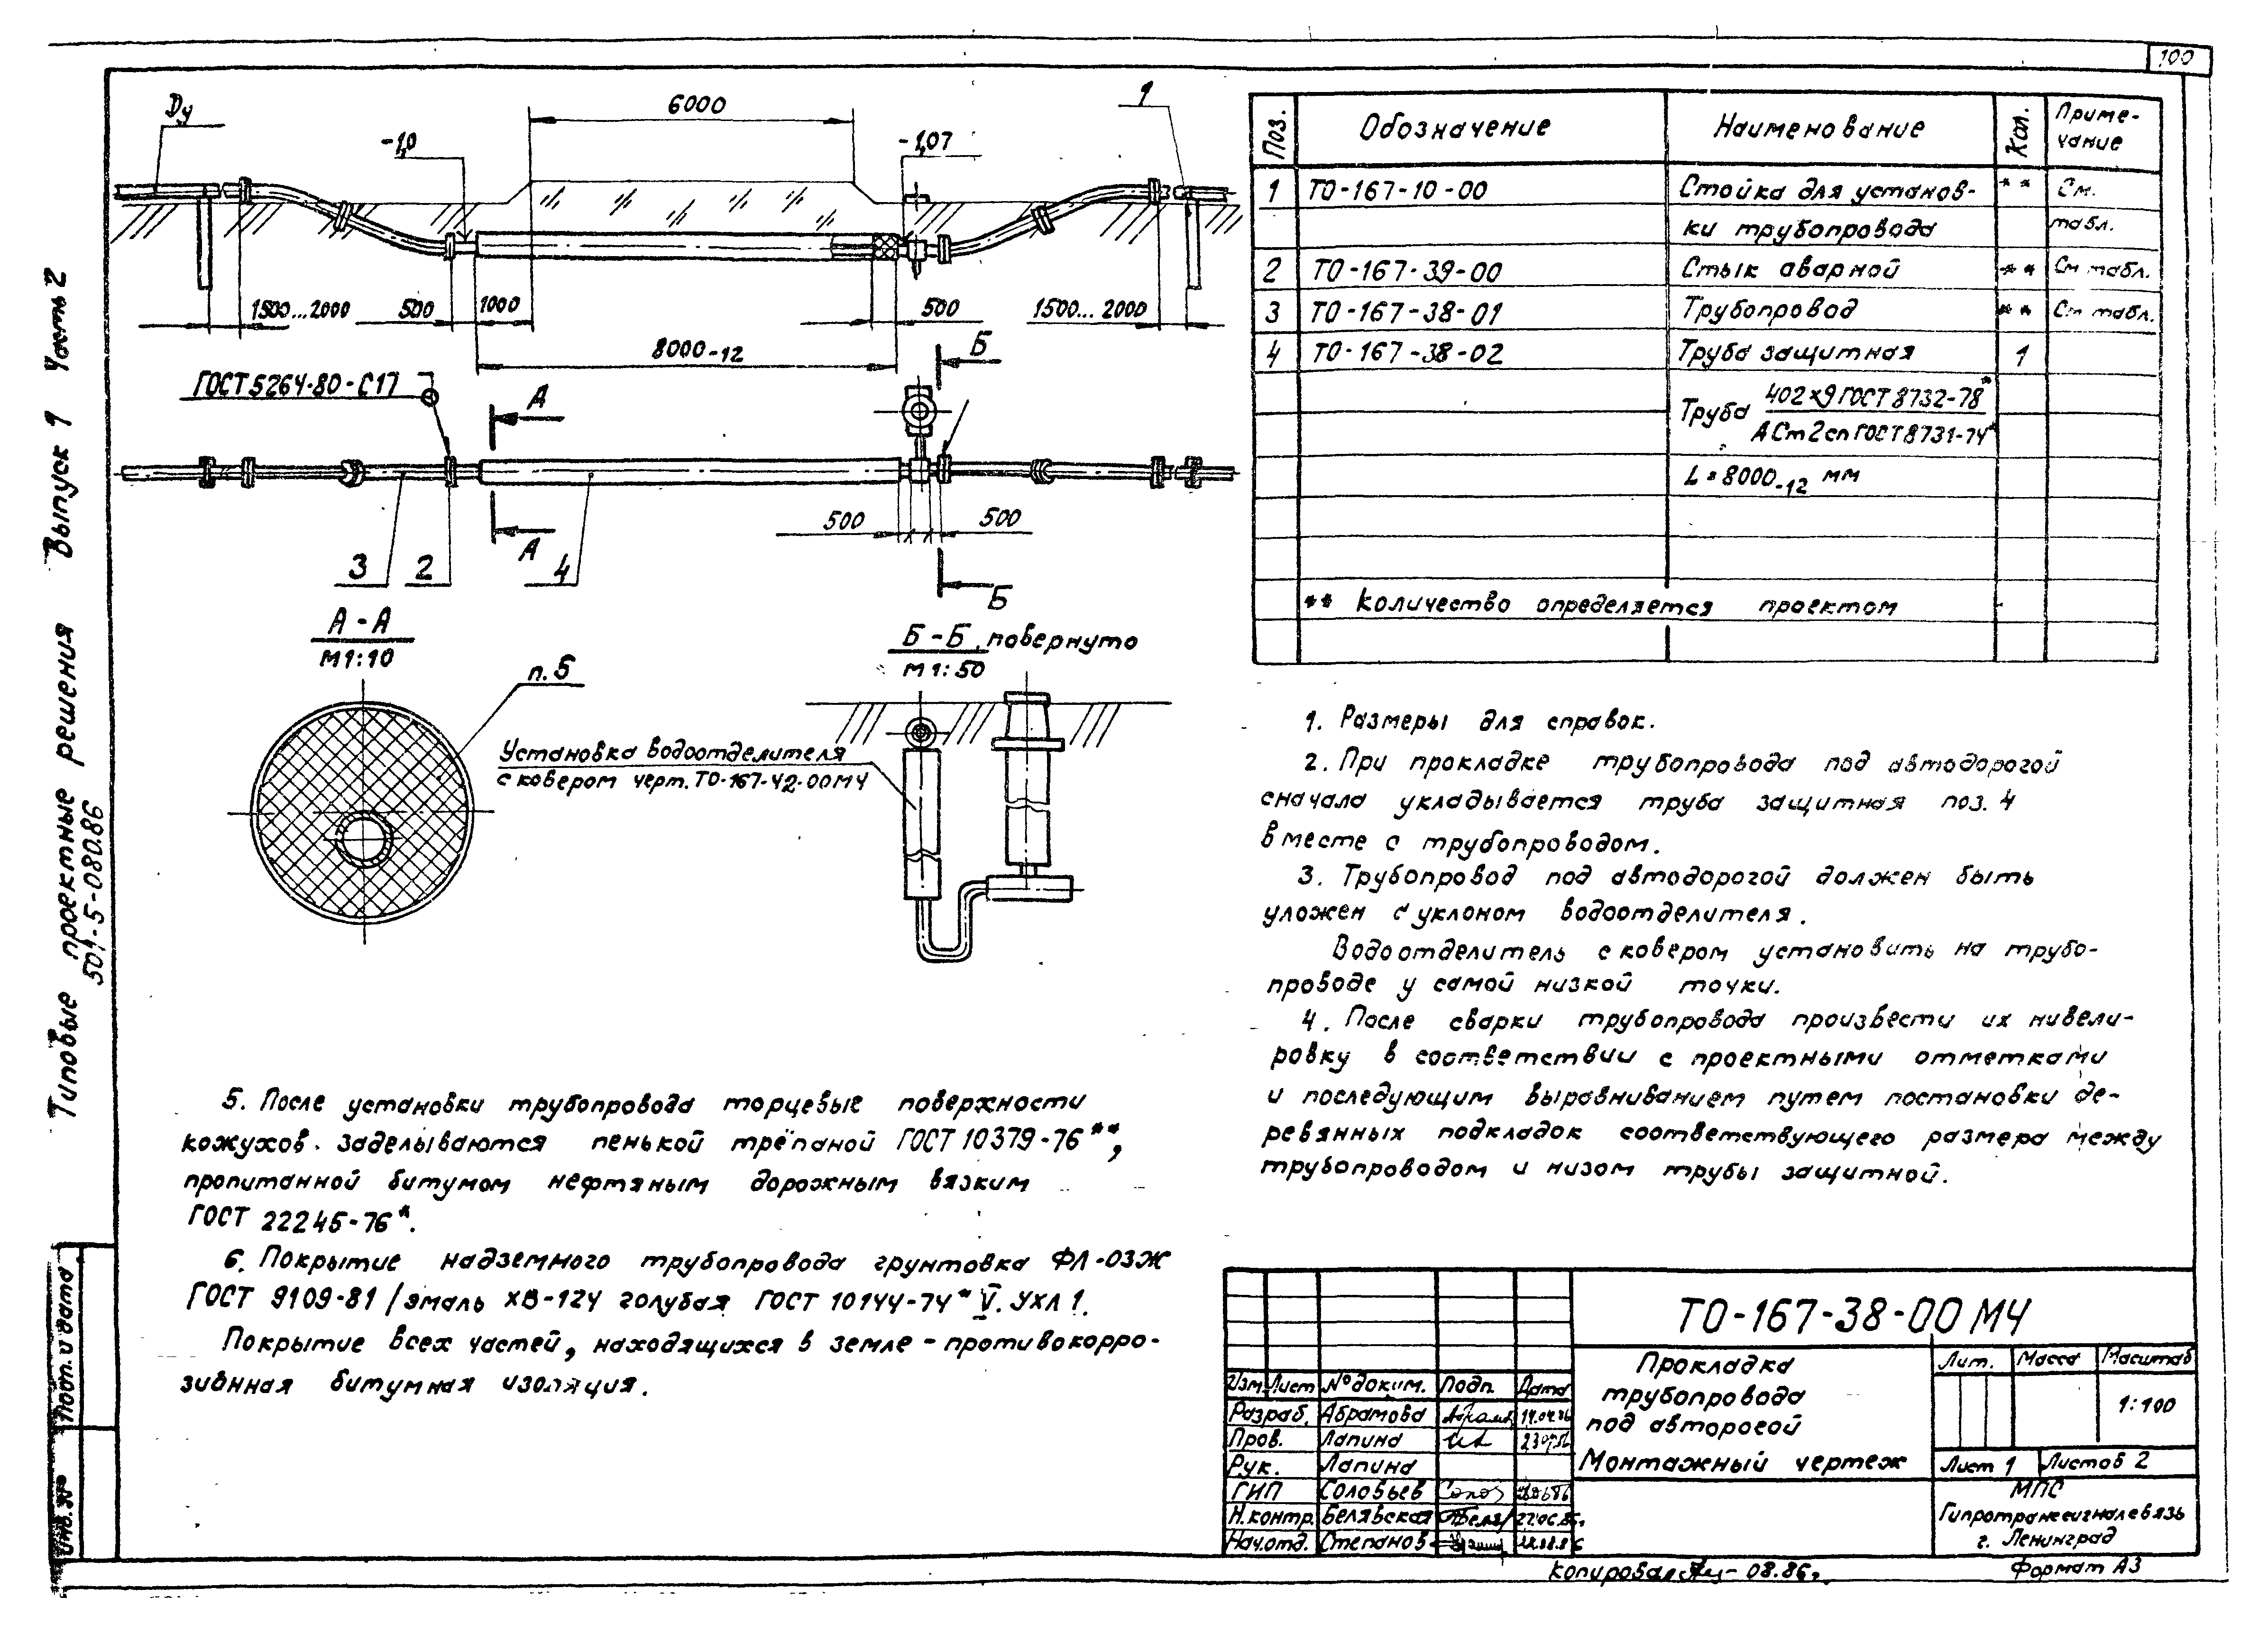 100
Типовые проектные решения Выпуск 1 Часть 2
501-5-080.86
Подп. и дата
Инв. №
Ду
6000
1
-1,0
-1,07
1500...2000
500
1000
500
1500...2000
8000-12
Б
ГОСТ 5264-80-С17
А
500
500
3
2
А
4
Б
А-А
М1:10
п.5
Б-Б, повернуто
М1:50
Установка водоотделителя
с ковером черт. ТО-167-42-00МЧ
Поз.
Обозначение
Наименование
Кол.
Приме-
чание
1 ТО-167-10-00 Стойка для установ- ** См.
ки трубопровода табл.
2 ТО-167-39-00 Стык сварной ** См табл.
3 ТО-167-38-01 Трубопровод ** См табл.
4 ТО-167-38-02 Труба защитная 1
Труба 402×9 ГОСТ 8732-78*
А Ст2сп ГОСТ 8731-74*
L=8000-12 мм
** Количество определяется проектом
1. Размеры для справок.
2. При прокладке трубопровода под автодорогой
сначала укладывается труба защитная поз. 4
вместе с трубопроводом.
3. Трубопровод под автодорогой должен быть
уложен с уклоном водоотделителя.
Водоотделитель с ковером установить на трубо-
проводе у самой низкой точки.
4. После сварки трубопровода произвести их нивели-
ровку в соответствии с проектными отметками
и последующим выравниванием путем постановки де-
ревянных подкладок соответствующего размера между
трубопроводом и низом трубы защитной.
5. После установки трубопровода торцевые поверхности
кожухов заделываются пенькой трёпаной ГОСТ 10379-76**,
пропитанной битумом нефтяным дорожным вязким
ГОСТ 22245-76*.
6. Покрытие надземного трубопровода грунтовка ФЛ-03Ж
ГОСТ 9109-81/эмаль ХВ-124 голубая ГОСТ 10144-74* V. УХЛ 1.
Покрытие всех частей, находящихся в земле - противокорро-
зивнная битумная изоляция.
ТО-167-38-00 МЧ
Прокладка
трубопровода
под авторогой
Монтажный чертеж
Лит. Масса Масштаб
1:100
Лист 1 Листов 2
МПС
Гипротранссигналсвязь
г. Ленинград
Изм. Лист № докум. Подп. Дата
Разраб. Абрамова 14.04.86
Пров. Лапина
Рук. Лапина
ГИП Соловьев
Н.контр. Белявская
Нач.отд. Степанов
Копировал 08.86г.
Формат А3